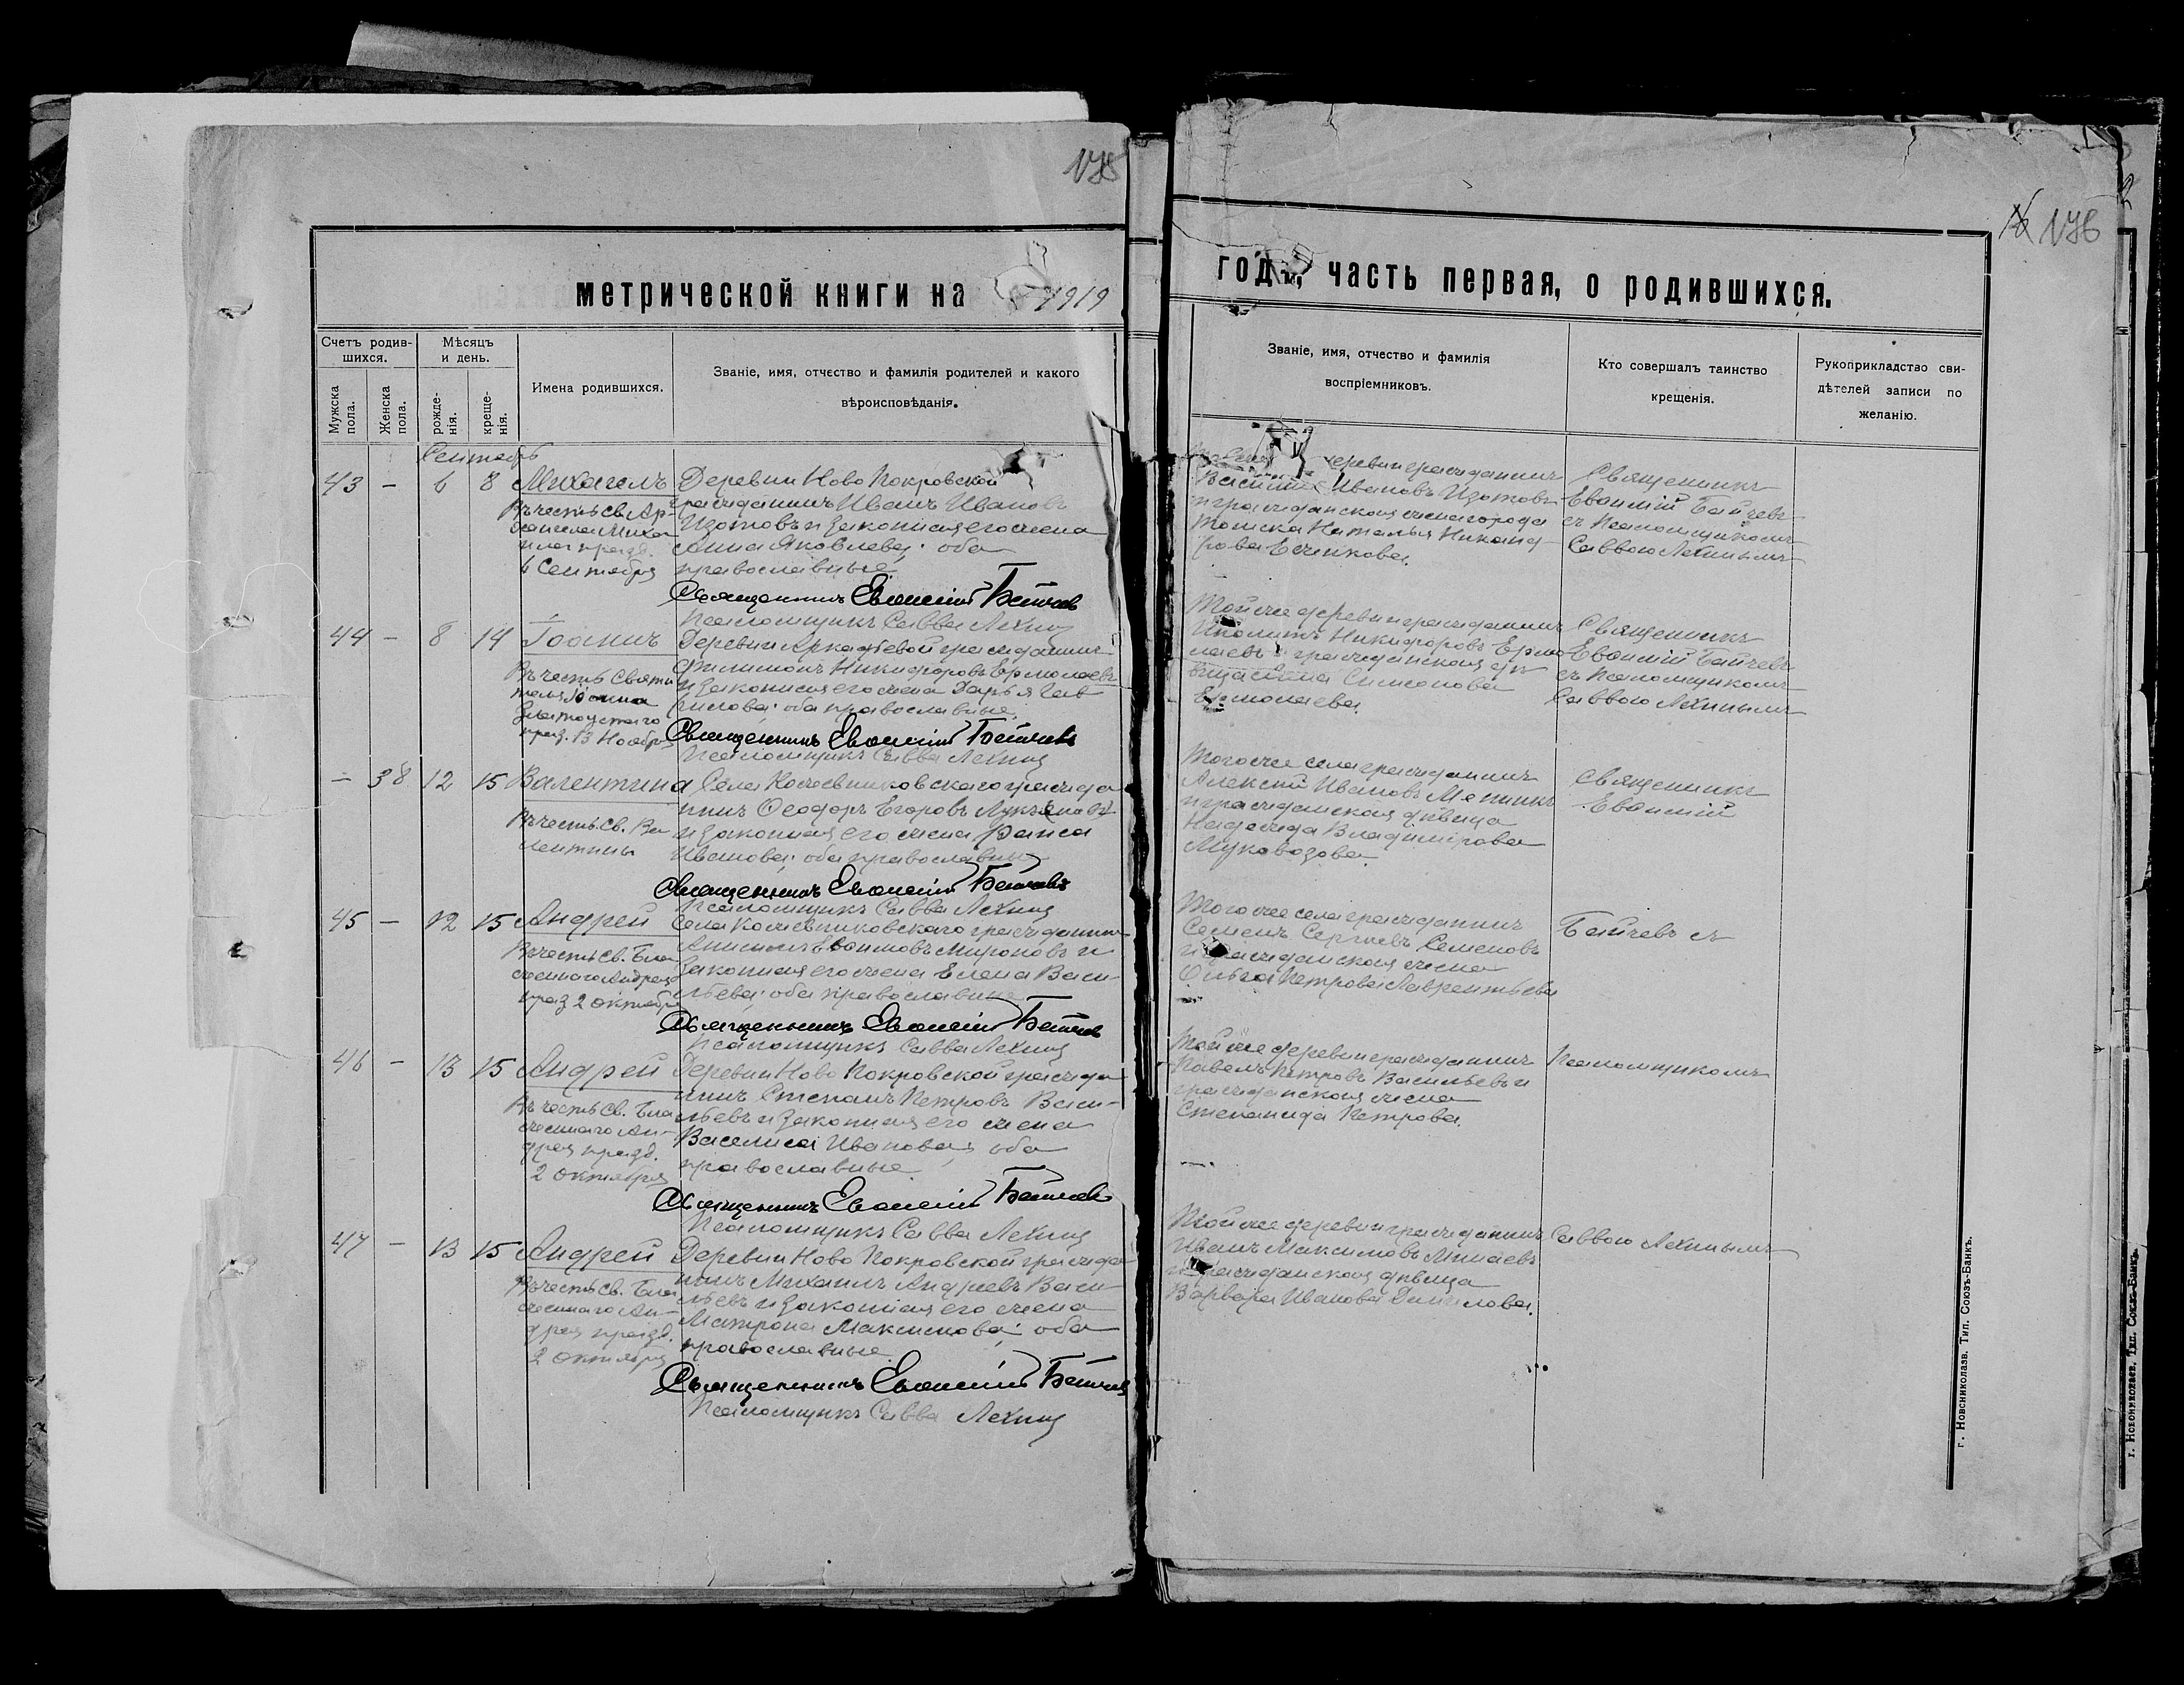 175
176
метрической книги на 1919
годъ, часть первая, о родившихся.
Счетъ родив-
шихся.
Мѣсяцъ
и день.
Мужска
пола.
Женска
пола.
рожде-
нія.
креще-
нія.
Имена родившихся.
Званіе, имя, отчество и фамилія родителей и какого
вѣроисповѣданія.
Званіе, имя, отчество и фамилія
воспріемниковъ.
Кто совершалъ таинство
крещенія.
Рукоприкладство сви-
дѣтелей записи по
желанію.
Сентябрь
43 - 6 8 Михаилъ
Въ честь Св. Ар-
хангела Миха
ила празд.
6 Сентября
Деревни Ново Покровской
гражданинъ Иванъ Ивановъ
Изотовъ и законная его жена
Анна Яковлева, оба
православные.
Священникъ Евѳимій Байчевъ
Псаломщикъ Савва Лехинъ
деревни гражданинъ
Василий Ивановъ Изотовъ
и гражданская жена города
Томска Наталья Никанд-
рова
Священникъ
Евѳимій Байчевъ
съ Псаломщикомъ
Саввою Лехинымъ
44 - 8 14 Іоаннъ
Въ честь Святи
теля Іоанна
Златоустаго
праз. 13 Ноября
Деревни Аркадьевой гражданинъ
Филимонъ Никифоровъ Ермолаевъ
и законная его жена Дарья Гав
рилова, оба православные.
Священникъ Евѳимій Байчевъ
Псаломщикъ Савва Лехинъ
Той же деревни гражданинъ
Иполитъ Никифоровъ Ермо
лаевъ и гражданская дѣ
вица Симеонова
Ермолаева.
Священникъ
Евѳимій Байчевъ
съ Псаломщикомъ
Саввою Лехинымъ
- 38 12 15 Валентина
Въ честь Св. Ва
лентины
Села Кожевниковскаго гражда
нинъ Ѳеодоръ Егоровъ
и законная его жена Раиса
Иванова, оба православные
Священникъ Евѳимій Байчевъ
Псаломщикъ Савва Лехинъ
Того же села гражданинъ
Алексѣй Ивановъ
и гражданская дѣвица
Надежда Владимірова
Муковозова.
Священникъ
Евѳимій
45 - 12 15 Андрей
Въ честь Св. Бла
женнаго Андрея
праз 2 октября
Села Кожевниковскаго гражданинъ
Анисимъ Евѳимовъ Мироновъ и
законная его жена Елена Васи-
льева, оба православные
Священникъ Евѳимій Байчевъ
Псаломщикъ Савва Лехинъ
Того же села гражданинъ
Семенъ Сергѣевъ Семеновъ
и гражданская жена
Ольга Петрова Лаврентьева
Байчевъ съ
46 - 13 15 Андрей
Въ честь Св. Бла
женнаго Ан-
дрея празд.
2 октября
Деревни Ново Покровской гражда
нинъ Степанъ Петровъ Васи-
льевъ и законная его жена
Василиса Иванова, оба
православные.
Священникъ Евѳимій Байчевъ
Псаломщикъ Савва Лехинъ
Той же деревни гражданинъ
Павелъ Петровъ Васильевъ и
гражданская жена
Степанида Петрова.
Псаломщикомъ
47 - 13 15 Андрей
Въ честь Св. Бла
женнаго Ан-
дрея празд.
2 октября
Деревни Ново Покровской гражда
нинъ Михаилъ Андреевъ Васи
льевъ и законная его жена
Матрона Максимова, оба
православные.
Священникъ Евѳимій Байчевъ
Псаломщикъ Савва Лехинъ
Той же деревни гражданинъ
Иванъ Максимовъ Минаевъ
и гражданская дѣвица
Варвара Иванова Данилова.
Саввою Лехинымъ
г. Новониколаев. Тип. Союзъ-Банкъ.
г. Новониколаев. Тип. Союзъ-Банкъ.